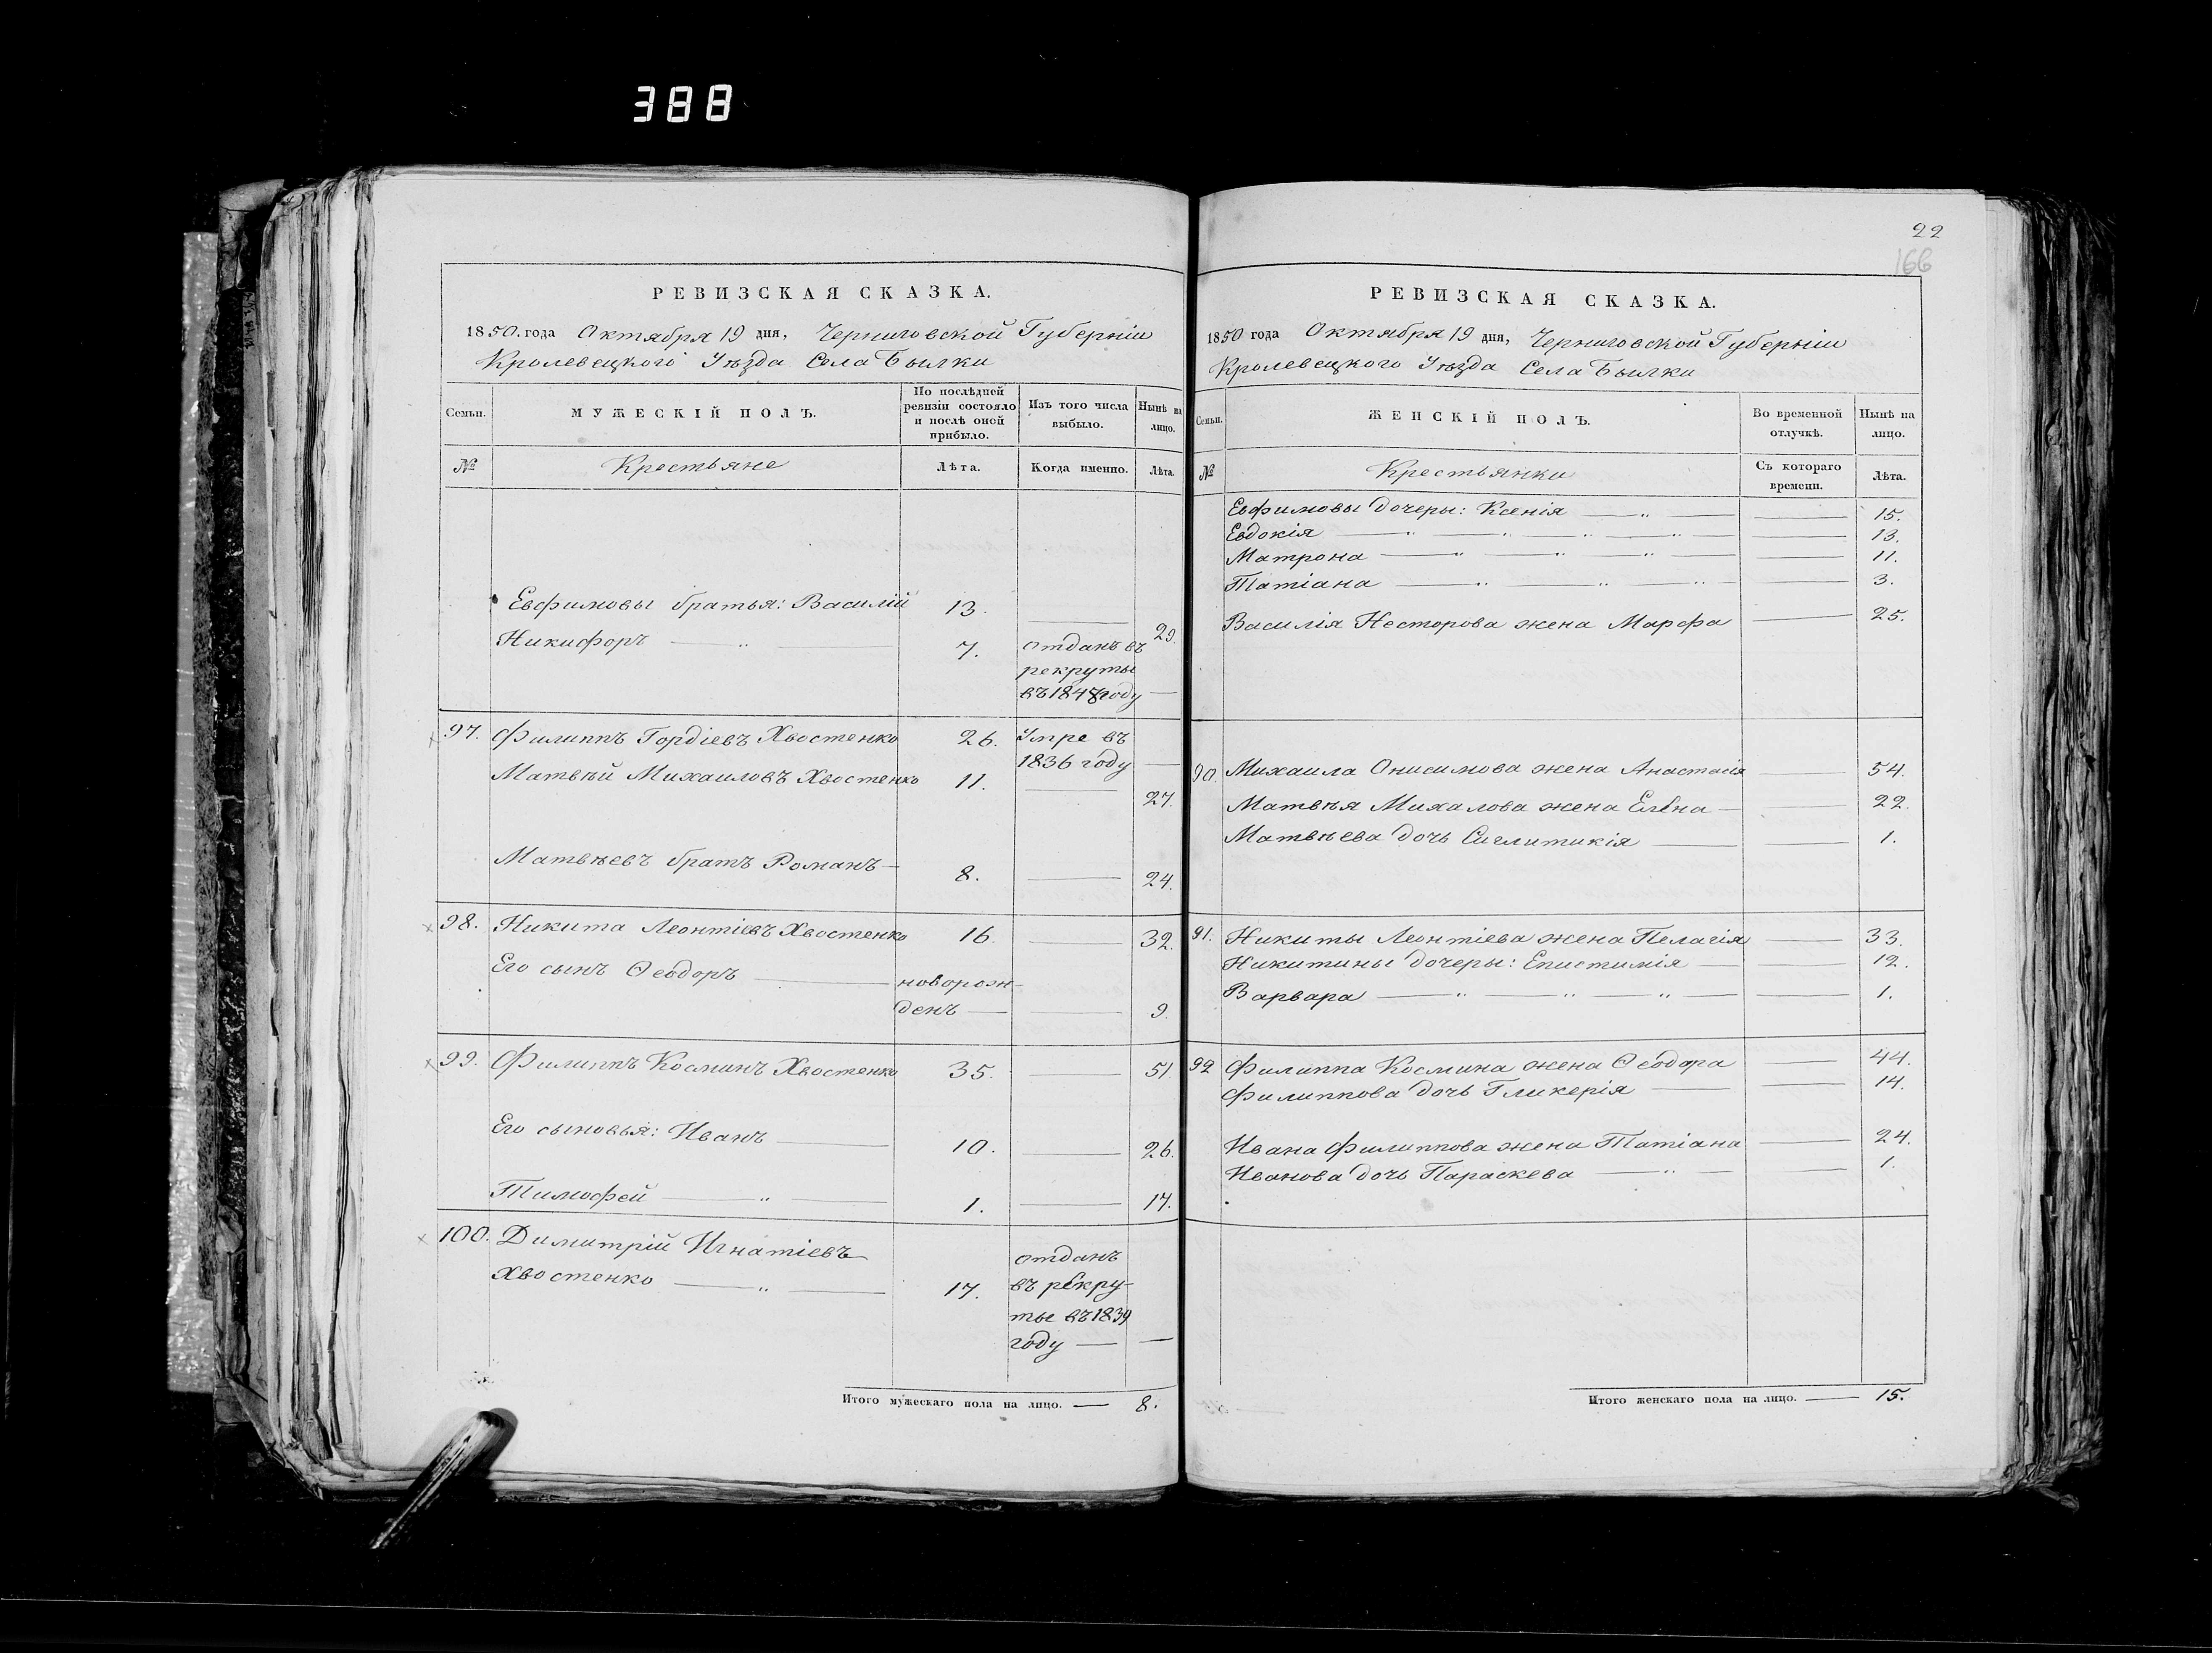 388
РЕВИЗСКАЯ СКАЗКА.
1850. года Октября 19 дня, Черниговской Губерніи
Кролевецкого Уѣзда Села Былки
Семьи.
МУЖЕСКІЙ ПОЛЪ.
По послѣдней
ревизіи состояло
и послѣ оной
прибыло.
Изъ того числа
выбыло.
Нынѣ на
лицо.
№
Крестьяне
Лѣта.
Когда именно.
Лѣта.
Евфимовы братья: Василій 13. 29.
Никифоръ — „ — 7. отданъ въ
рекруты
въ 1847 году —
97. Филиппъ Гордіевъ Хвостенко 26. Умре въ
1836 году —
Матвѣй Михаиловъ Хвостенко 11. — 27.
Матвѣевъ братъ Романъ — 8. — 24.
98. Никита Леонтіевъ Хвостенко 16. — 32.
Его сынъ Ѳеодоръ — новорож-
денъ — — 9.
99. Филиппъ Косминъ Хвостенко 35. — 51.
Его сыновья: Иванъ — 10. — 26.
Тимофей — „ — 1. — 17.
100. Димитрій Игнатіевъ
Хвостенко — „ — 17. отданъ
въ рекру-
ты въ 1839
году — —
Итого мужескаго пола на лицо. — 8.
22
166
РЕВИЗСКАЯ СКАЗКА.
1850 года Октября 19 дня, Черниговской Губерніи
Кролевецкого Уѣзда Села Былки
Семьи.
ЖЕНСКІЙ ПОЛЪ.
Во временной
отлучкѣ.
Нынѣ на
лицо.
№
Крестьянки
Съ котораго
времени.
Лѣта.
Евфимовы дочеры: Ксенія — „ — — 15.
Евдокія — „ — „ — „ — „ — — 13.
Матрона — „ — „ — „ — — 11.
Татіана — „ — „ — „ — — 3.
Василія Несторова жена Марфа — 25.
90. Михаила Онисимова жена Анастасія — 54.
Матвѣя Михалова жена Елена — — 22.
Матвѣева дочь Сиглитикія — — 1.
91. Никиты Леонтіева жена Пелагія — 33.
Никитины дочеры: Епистимія — — 12.
Варвара — „ — „ — „ — — 1.
92 Филиппа Космина жена Ѳеодора — 44.
Филиппова дочь Гликерія — — 14.
Ивана Филиппова жена Татіана — 24.
Иванова дочь Параскева — „ — — 1.
Итого женскаго пола на лицо. — 15.